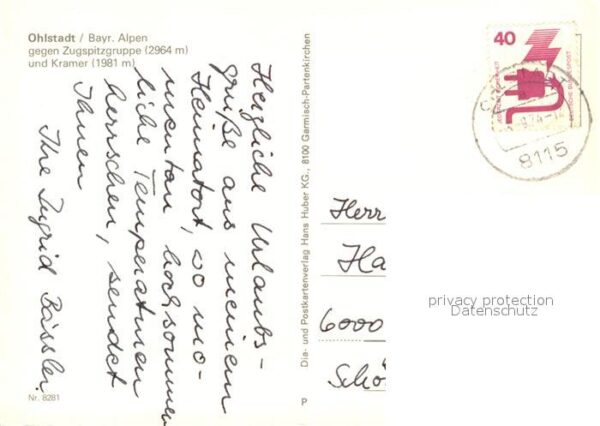 Ohlstadt / Bayr. Alpen
gegen Zugspitzgruppe (2964 m)
und Kramer (1981 m)
Herzliche Urlaubs-
grüße aus meinem
Heimatort, wo mo-
mentan hochsommer
liche Temperaturen
herrschen, sendet
Ihnen
Ihre Ingrid Bässler
Nr. 8281
Dia- und Postkartenverlag Hans Huber KG., 8100 Garmisch-Partenkirchen
P
40
DEUTSCHE BUNDESPOST
8115
Herr
Ha
6000
Schö
privacy protection
Datenschutz